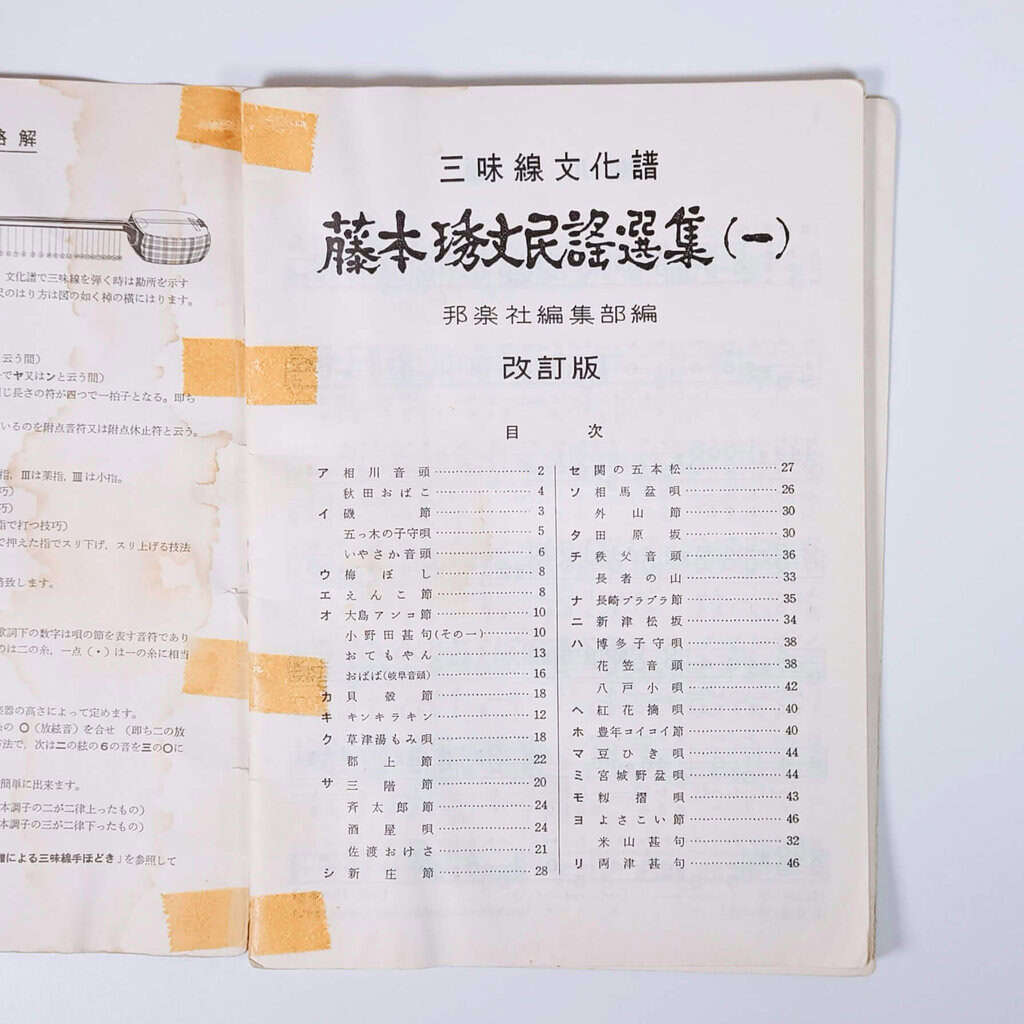 略解
文化譜で三味線を弾く時は勘所を示す
のはり方は図の如く棹の横にはります。
云う間)
でヤ又はンと云う間)
同じ長さの符が四つで一拍子となる。即ち
いるのを附点音符又は附点休止符と云う。
指, Ⅲは薬指, Ⅲは小指。
巧)
巧)
指で打つ技巧)
で押えた指でスリ下げ, スリ上げる技法
致します。
歌詞下の数字は唄の節を表す音符であり
のは二の糸, 一点(・)は一の糸に相当
楽器の高さによって定めます。
の〇(放絃音)を合せ(即ち二の放
方法で, 次は二の絃の6の音を三の〇に
簡単に出来ます。
本調子の二が二律上ったもの)
本調子の三が二律下ったもの)
譜による三味線手ほどき」を参照して
三味線文化譜
藤本琇丈民謡選集(一)
邦楽社編集部編
改訂版
目次
ア 相川音頭 2
秋田おばこ 4
イ 磯節 3
五っ木の子守唄 5
いやさか音頭 6
ウ 梅ぼし 8
エ えんこ節 8
オ 大島アンコ節 10
小野田甚句(その一) 10
おてもやん 13
おばば(岐阜音頭) 16
カ 貝殻節 18
キ キンキラキン 12
ク 草津湯もみ唄 18
郡上節 22
サ 三階節 20
斉太郎節 24
酒屋唄 24
佐渡おけさ 21
シ 新庄節 28
セ 関の五本松 27
ソ 相馬盆唄 26
外山節 30
タ 田原坂 30
チ 秩父音頭 36
長者の山 33
ナ 長崎ブラブラ節 35
ニ 新津松坂 34
ハ 博多子守唄 38
花笠音頭 38
八戸小唄 42
ヘ 紅花摘唄 40
ホ 豊年コイコイ節 40
マ 豆ひき唄 44
ミ 宮城野盆唄 44
モ 籾摺唄 43
ヨ よさこい節 46
米山甚句 32
リ 両津甚句 46